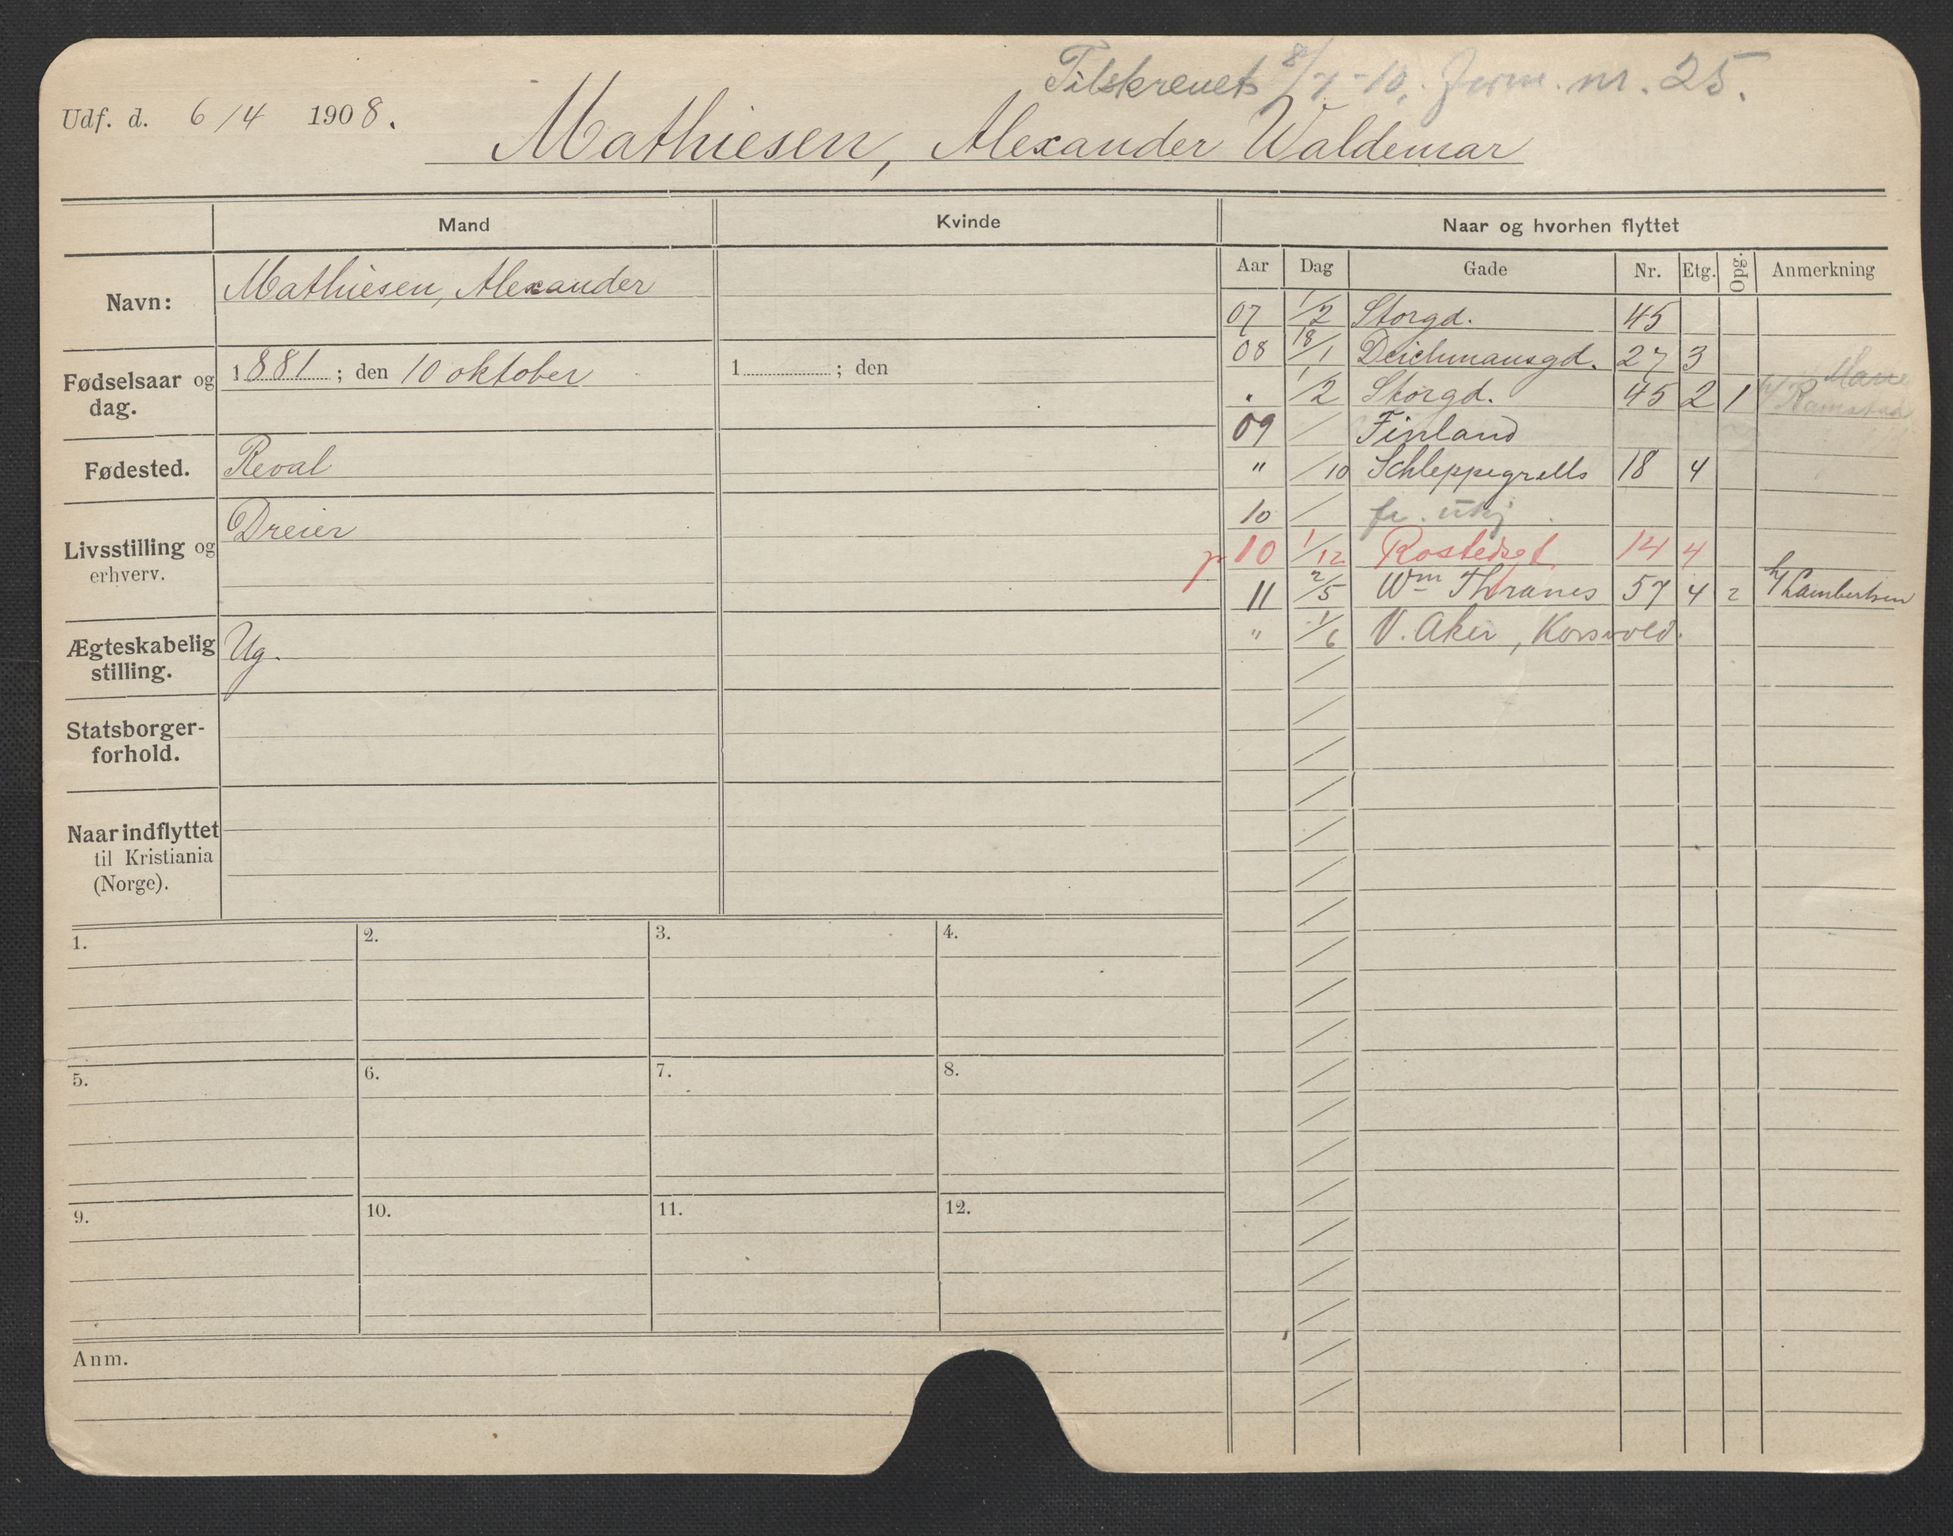 Tilskrevet 8/7-10. Form. nr. 25.
Udf. d. 6/4 1908.
Mathiesen, Alexander Waldemar
Mand
Kvinde
Naar og hvorhen flyttet
Aar Dag Gade Nr. Etg. Opg. Anmerkning
Navn: Mathiesen, Alexander
Fødselsaar og dag. 1881; den 10 oktober
1 ; den
Fødested. Reval
Livsstilling og erhverv. Dreier
Ægteskabelig stilling. Ug.
Statsborger-
forhold.
Naar indflyttet
til Kristiania
(Norge).
07 1/2 Storgd. 45
08 18/1 Deichmansgd. 27 3
" 1/2 Storgd. 45 2 1 h/ Ramstad
09 / Finland
" /10 Schleppegrells 18 4
10 / fr. ukj
10 1/12 Rostedsgt. 14 4
11 2/5 Wm Thranes 57 4 2 h/ Lambertsen
" 1/6 V. Aker, Korsvold.
1. 2. 3. 4.
5. 6. 7. 8.
9. 10. 11. 12.
Anm.